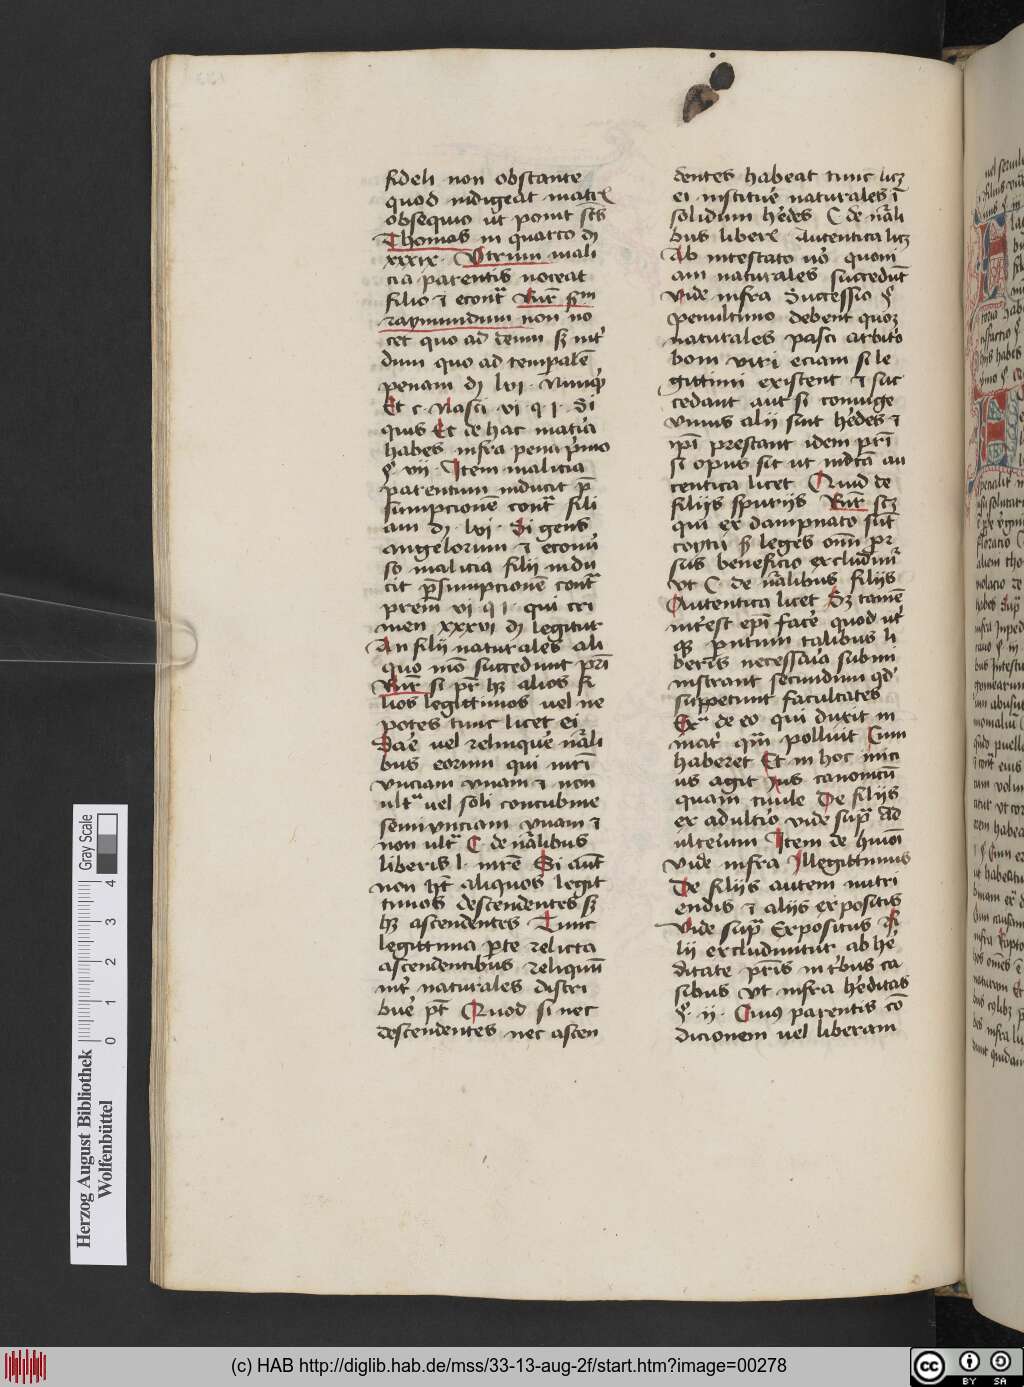 fideli non obstante
quod indigeat matrē
obsequio ut ponit scūs
Thomas in quarto di
xxxix · Utrum mali
cia parentis noceat
filio et econtra Rūr sm
raymundum non no
cet quo ad deum sz int
dum quo ad tempalē
penam di lvi · Nunqp
Et c · nasci vi q i · Si
quis Et de hac matia
habes infra pena pimo
§ vii · Item malicia
parentum inducit p̄
sumpcionē contra fili
am di · lvi · Si gens
angelorum et econu
so malicia filii indu
cit p̄sumpcionē contra
prem vi q i · qui cri
men xxxvi di legitur
An filii naturales ali
quo mō succedunt pri
Rūr si pr hz alios fi
lios legittimos vel ne
potes tunc licet ei
Dare vel relinque nrali
bus eorum qui mri
vnciam vnam et non
ultra vel soli concubine
semivnciam vnam et
non ultra C · de nralibus
liberis l · mrē Si aūt
non hēt aliquos legit
timos descendentes sz
hz ascendentes Tunc
legittima pte relicta
ascendentibus reliquū
int naturales distri
bue pt Quod si nec
descendentes nec ascen
dentes habeat tunc licz
ei instituere naturales ī
solidum hedes C de nrali
bus liberz Autentica licz
Ab intestato uo quom
am naturales succedūt
vide infra Successio §
penultimo debent quoz
naturales pasci arbitrio
boni viri eciam si le
gittimi existent et suc
cedant aut si coniuge
vnius alii sint hedes et
ipi prestant idem pri
si opus sit ut indcā au
tentica licet Quid de
filiis spuriis Rūr scz
qui ex dampnato sūt
coytu s leges omi pr
sus beneficio excludunt
vt C de nralibus filiis
Autentica licet Sz tamē
interest epi face quod ut
qz pntum talibus li
beris necessaria submi
nistrant secundum qd
suppetunt facultates
Exa de eo qui duxit in
matr qm polluit Cum
haberet Et in hoc mici
us agit Ius canonicū
quam ciuile De filiis
ex adultio vide supra Ad
ulterium Item de quoni
vide infra Illegittimus
De filiis autem nutri
endis et aliis expositis
Vide supra Expositus Fi
lii excluduntur ab he
ditate pris in tbus ca
sibus vt infra heditas
§ · ii · Cuius parentis cō
dicionem vel liberam
Gray Scale
4
3
2
1
0
Herzog August Bibliothek
Wolfenbüttel
(c) HAB http://diglib.hab.de/mss/33-13-aug-2f/start.htm?image=00278
cc
BY SA